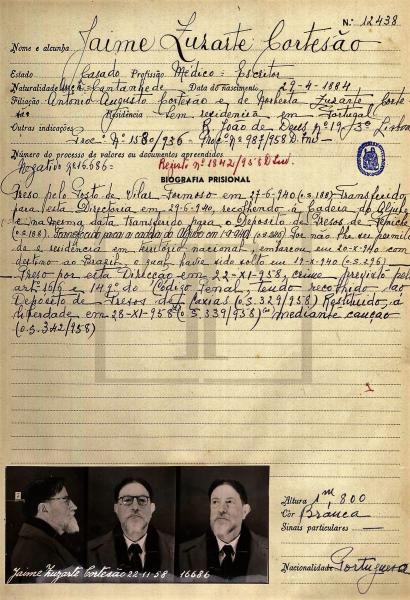 N.º 12438
Nome e alcunha Jaime Zuzarte Cortesão
Estado Casado Profissão Médico e Escritor
Naturalidade Cantanhede Data do nascimento 29-4-1884
Filiação António Augusto Cortesão e de Norberta Zuzarte Corte-
são Residência Sem residência em Portugal
Outras indicações R. João de Deus nº 19-3º Lisboa
Procº Nº 1580/936 - Procº nº 987/958
Número do processo de valores ou documentos apreendidos
Negativo nº 16.686 Registo nº 1842/958
BIOGRAFIA PRISIONAL
Preso pelo Posto de Vilar Formoso em 27-6-940 (O.S. 188) Transferido
para esta Directoria em 29-6-940, recolhendo à Cadeia do Aljube
e na mesma data Transferido para o Depósito de Presos de Peniche
(O.S. 188) Por não lhe ser permiti-
da e residência em território nacional, embarcou em 20-X-940 com
destino ao Brazil, o qual havia sido solto em 19-X-940 (O.S. 296)
Preso por esta Direcção em 22-XI-958, crime previsto pelo
artº 166 e 149º do Código Penal, tendo recolhido ao
Depósito de Presos de Caxias (O.S. 329/958) Restituído à
liberdade em 28-XI-958 (O.S. 339/958) mediante caução
(O.S. 342/958)
Altura 1m,800
Côr Branca
Sinais particulares —
Nacionalidade Portuguesa
Jaime Zuzarte Cortesão 22-11-58 16686